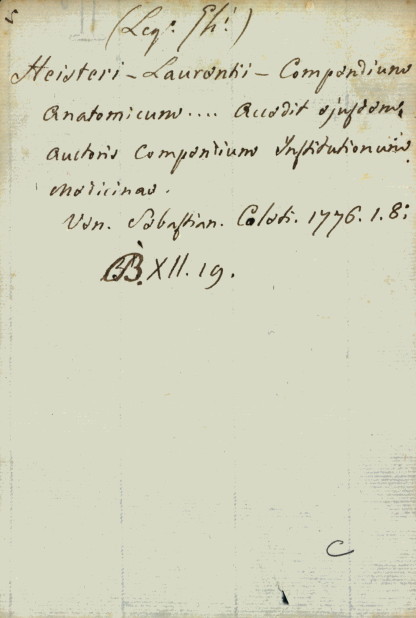 (Leg.º Gh.i)
Heisteri - Laurentii - Compendium
Anatomicum .... Accedit ejusdem
Auctoris Compendium Institutionum
Medicinae.
Ven. Sebastian. Coleti. 1776. 1. 8:
XII. 19.
C